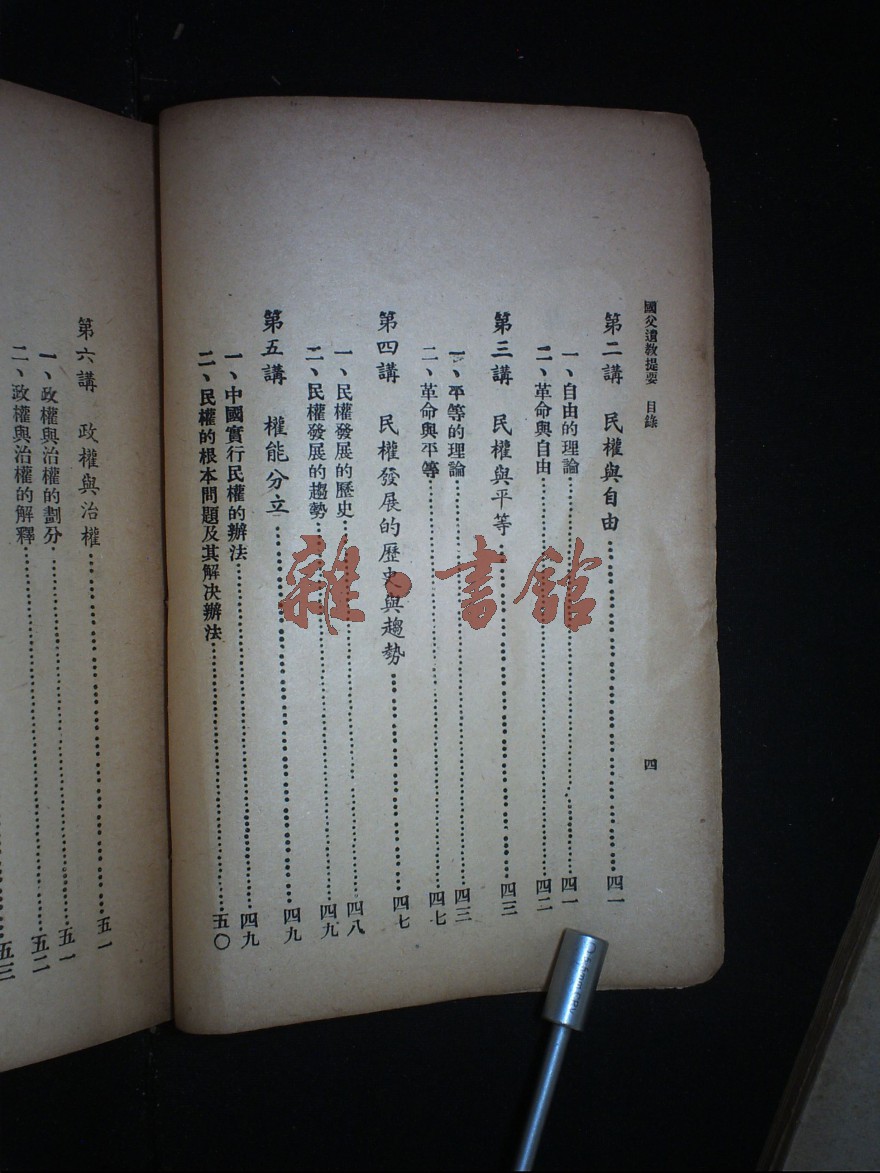 國父遺教提要 目錄
四
第二講 民權與自由……四一
一、自由的理論……四一
二、革命與自由……四二
第三講 民權與平等……四三
一、平等的理論……四三
二、革命與平等……四七
第四講 民權發展的歷史與趨勢……四七
一、民權發展的歷史……四八
二、民權發展的趨勢……四九
第五講 權能分立……四九
一、中國實行民權的辦法……四九
二、民權的根本問題及其解决辦法……五〇
第六講 政權與治權……五一
一、政權與治權的劃分……五一
二、政權與治權的解釋……五二
五三
雜·書館